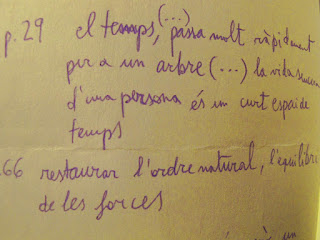 p. 29 el temps, (...) passa molt ràpidament
per a un arbre (...) la vida sencera
d'una persona és un curt espai de
temps
66 restaurar l'ordre natural, l'equilibri
de les forces